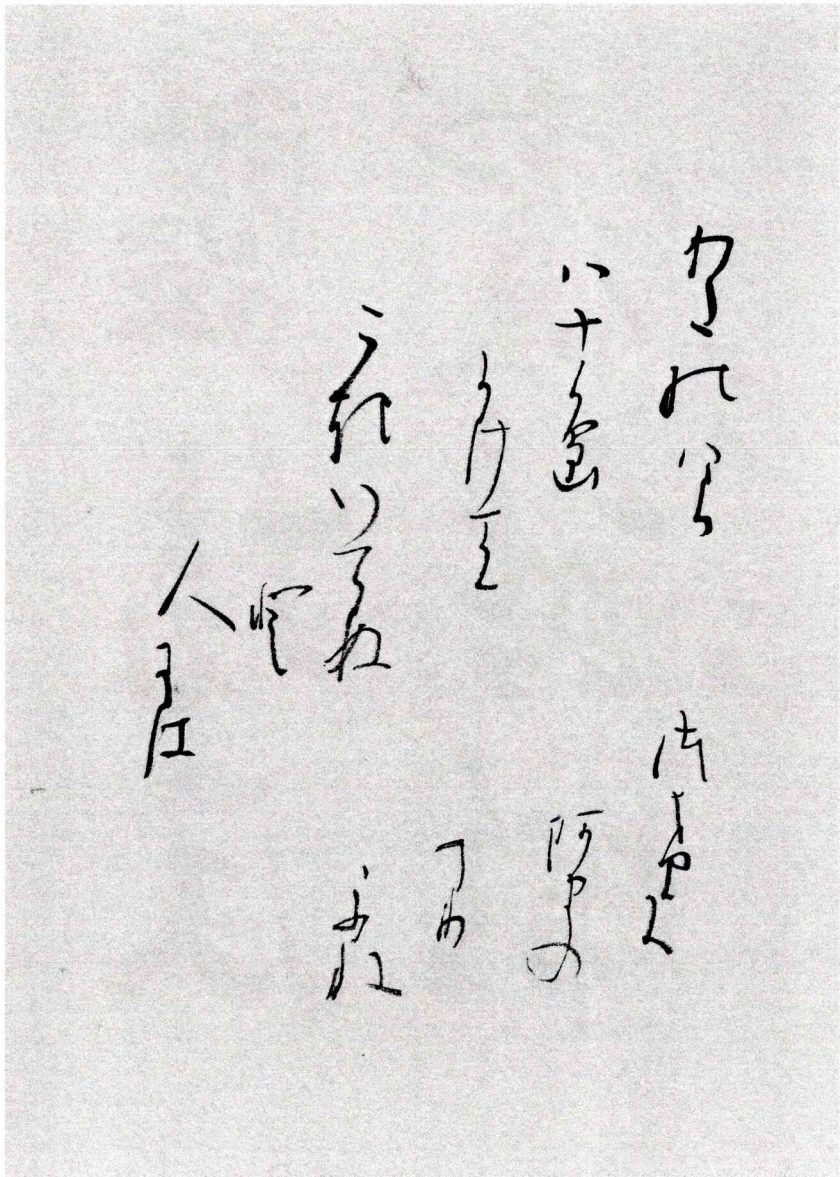 わたのはら
八十島
かけて
こぎいでぬ
と
人には
つげよ
阿まの
つり
ふね